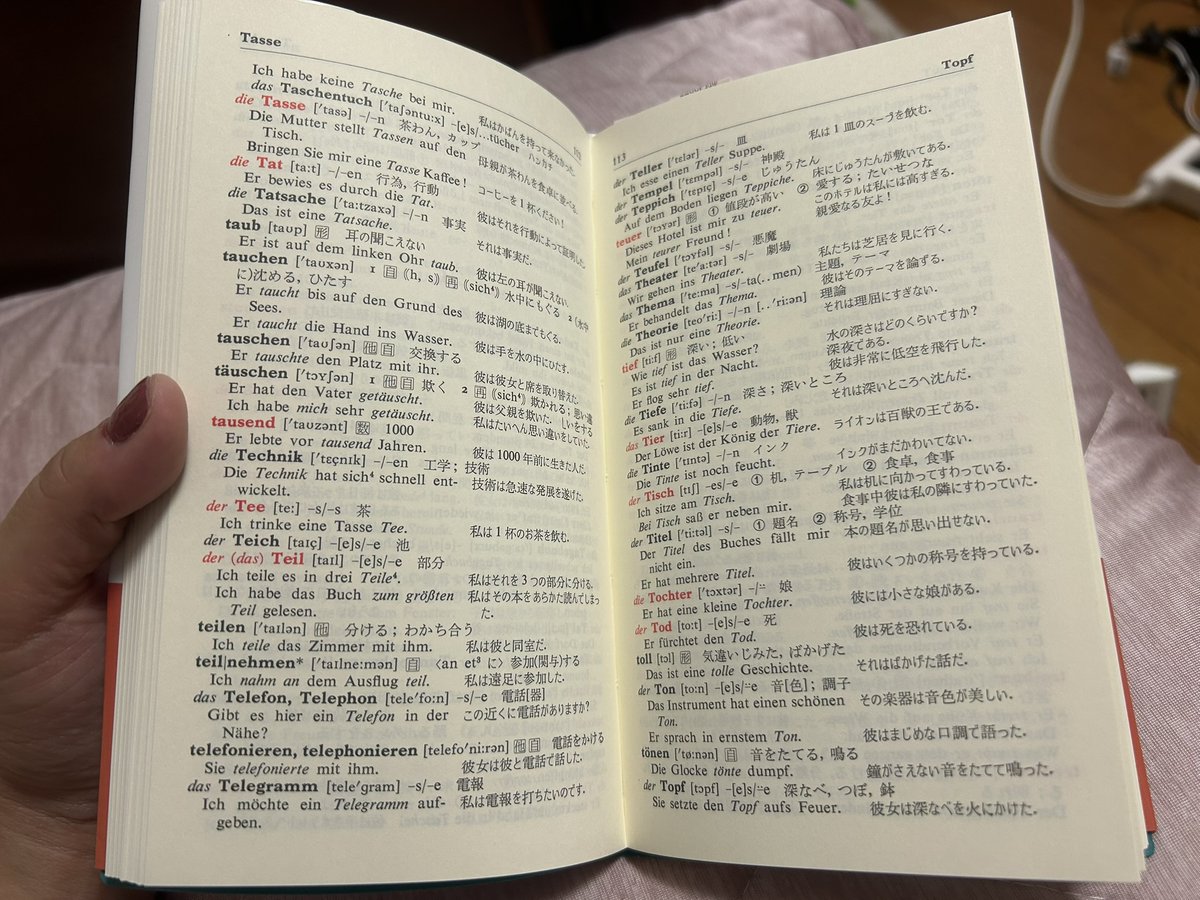 Tasse
Ich habe keine Tasche bei mir. 私はかばんを持って来なかった.
das Taschentuch ['taʃəntu:x] –[e]s/…tücher ハンカチ
die Tasse ['tasə] –/–n 茶わん, カップ
Die Mutter stellt Tassen auf den 母親が茶わんを食卓に並べる.
Tisch.
Bringen Sie mir eine Tasse Kaffee! コーヒーを1杯ください!
die Tat [ta:t] –/–en 行為, 行動
Er bewies es durch die Tat. 彼はそれを行動によって証明した
die Tatsache ['ta:tzaxə] –/–n 事実
Das ist eine Tatsache. それは事実だ.
taub [taʊp] 形 耳の聞こえない
Er ist auf dem linken Ohr taub. 彼は左の耳が聞こえない.
tauchen ['taʊxən] 1 自 (h, s) 再 《sich⁴》 水中にもぐる 2 (水中
に)沈める, ひたす
Er taucht bis auf den Grund des 彼は湖の底までもぐる.
Sees.
Er taucht die Hand ins Wasser. 彼は手を水の中にひたす.
tauschen ['taʊʃən] 他 自 交換する
Er tauschte den Platz mit ihr. 彼は彼女と席を取り替えた.
täuschen ['tɔʏʃən] 1 他 自 欺く 2 再 《sich⁴》 欺かれる; 思い違
Er hat den Vater getäuscht. 彼は父親を欺いた. しいをする
Ich habe mich sehr getäuscht. 私はたいへん思い違いをしていた.
tausend ['taʊzənt] 数 1000
Er lebte vor tausend Jahren. 彼は1000年前に生きた人だ.
die Technik ['tɛçnɪk] –/–en 工学; 技術
Die Technik hat sich⁴ schnell ent- 技術は急速な発展を遂げた.
wickelt.
der Tee [te:] –s/–s 茶
Ich trinke eine Tasse Tee. 私は1杯のお茶を飲む.
der Teich [taɪç] –[e]s/–e 池
der (das) Teil [taɪl] –[e]s/–e 部分
Ich teile es in drei Teile⁴. 私はそれを3つの部分に分ける.
Ich habe das Buch zum größten 私はその本をあらかた読んでしまっ
Teil gelesen. た.
teilen ['taɪlən] 他 分ける; わかち合う
Ich teile das Zimmer mit ihm. 私は彼と同室だ.
teil|nehmen* ['taɪlne:mən] 自 〈an et³ に〉 参加(関与)する
Ich nahm an dem Ausflug teil. 私は遠足に参加した.
das Telefon, Telephon [tele'fo:n] –s/–e 電話[器]
Gibt es hier ein Telefon in der この近くに電話がありますか?
Nähe?
telefonieren, telephonieren [telefo'ni:rən] 他 自 電話をかける
Sie telefonierte mit ihm. 彼女は彼と電話で話した.
das Telegramm [tele'gram] –s/–e 電報
Ich möchte ein Telegramm auf- 私は電報を打ちたいのです.
geben.
113
Topf
der Teller ['tɛlər] –s/– 皿
Ich esse einen Teller Suppe. 私は1皿のスープを飲む.
der Tempel ['tɛmpəl] –s/– 神殿
der Teppich ['tɛpɪç] –s/–e じゅうたん
Auf dem Boden liegen Teppiche. 床にじゅうたんが敷いてある.
teuer ['tɔʏər] 形 ① 値段が高い ② 愛する; たいせつな
Dieses Hotel ist mir zu teuer. このホテルは私には高すぎる.
Mein teurer Freund! 親愛なる友よ!
der Teufel ['tɔʏfəl] –s/– 悪魔
das Theater [te'a:tər] –s/– 劇場
Wir gehen ins Theater. 私たちは芝居を見に行く.
das Thema ['te:ma] –s/–ta(‥men) 主題, テーマ
Er behandelt das Thema. 彼はそのテーマを論ずる.
die Theorie [teo'ri:] –/–n [‥'ri:ən] 理論
Das ist nur eine Theorie. それは理屈にすぎない.
tief [ti:f] 形 深い; 低い
Wie tief ist das Wasser? 水の深さはどのくらいですか?
Es ist tief in der Nacht. 深夜である.
Er flog sehr tief. 彼は非常に低空を飛行した.
die Tiefe ['ti:fə] –/–n 深さ; 深いところ
Es sank in die Tiefe. それは深いところへ沈んだ.
das Tier [ti:r] –[e]s/–e 動物, 獣
Der Löwe ist der König der Tiere. ライオンは百獣の王である.
die Tinte ['tɪntə] –/–n インク
Die Tinte ist noch feucht. インクがまだかわいてない.
der Tisch [tɪʃ] –es/–e ① 机, テーブル ② 食卓, 食事
Ich sitze am Tisch. 私は机に向かってすわっている.
Bei Tisch saß er neben mir. 食事中彼は私の隣にすわっていた.
der Titel ['ti:təl] –s/– ① 題名 ② 称号, 学位
Der Titel des Buches fällt mir 本の題名が思い出せない.
nicht ein.
Er hat mehrere Titel. 彼はいくつかの称号を持っている.
die Tochter ['tɔxtər] –/⸚ 娘
Er hat eine kleine Tochter. 彼には小さな娘がある.
der Tod [to:t] –[e]s/–e 死
Er fürchtet den Tod. 彼は死を恐れている.
toll [tɔl] 形 気違いじみた, ばかげた
Das ist eine tolle Geschichte. それはばかげた話だ.
der Ton [to:n] –[e]s/⸚e 音[色]; 調子
Das Instrument hat einen schönen その楽器は音色が美しい.
Ton.
Er sprach in ernstem Ton. 彼はまじめな口調で語った.
tönen ['tø:nən] 自 音をたてる, 鳴る
Die Glocke tönte dumpf. 鐘がさえない音をたてて鳴った.
der Topf [tɔpf] –[e]s/⸚e 深なべ, つぼ, 鉢
Sie setzte den Topf aufs Feuer. 彼女は深なべを火にかけた.